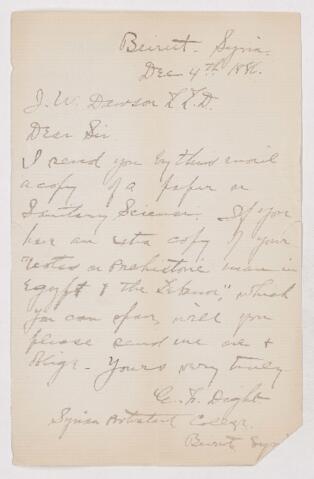 Beirut. Syria.
Dec 4th 1886.
J. W. Dawson L L. D.
Dear Sir
I send you by this mail
a copy of a paper on
Sanitary Science. If you
have an extra copy of your
"Notes on Prehistoric man in
Egypt & the Lebanon", which
you can spare, will you
please send me one &
oblige. Yours very truly
C. F. Dight
Syrian Protestant College.
Beirut Syria